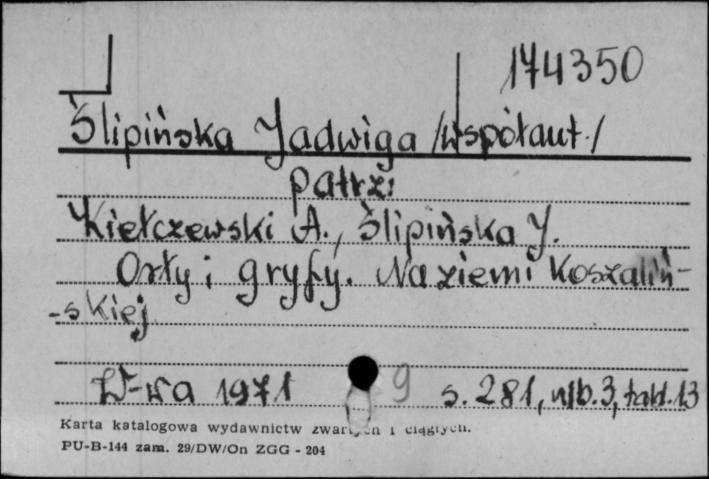 174350
Ślipińska Jadwiga /współaut./
patrz:
Kiełczewski A., Ślipińska J.
Orły i gryfy. Na ziemi Koszaliń-
-skiej
W-wa 1971 9 s. 281, nlb. 3, tabl. 13
Karta katalogowa wydawnictw zwartych i ciągłych.
PU-B-144 zam. 29/DW/On ZGG - 204